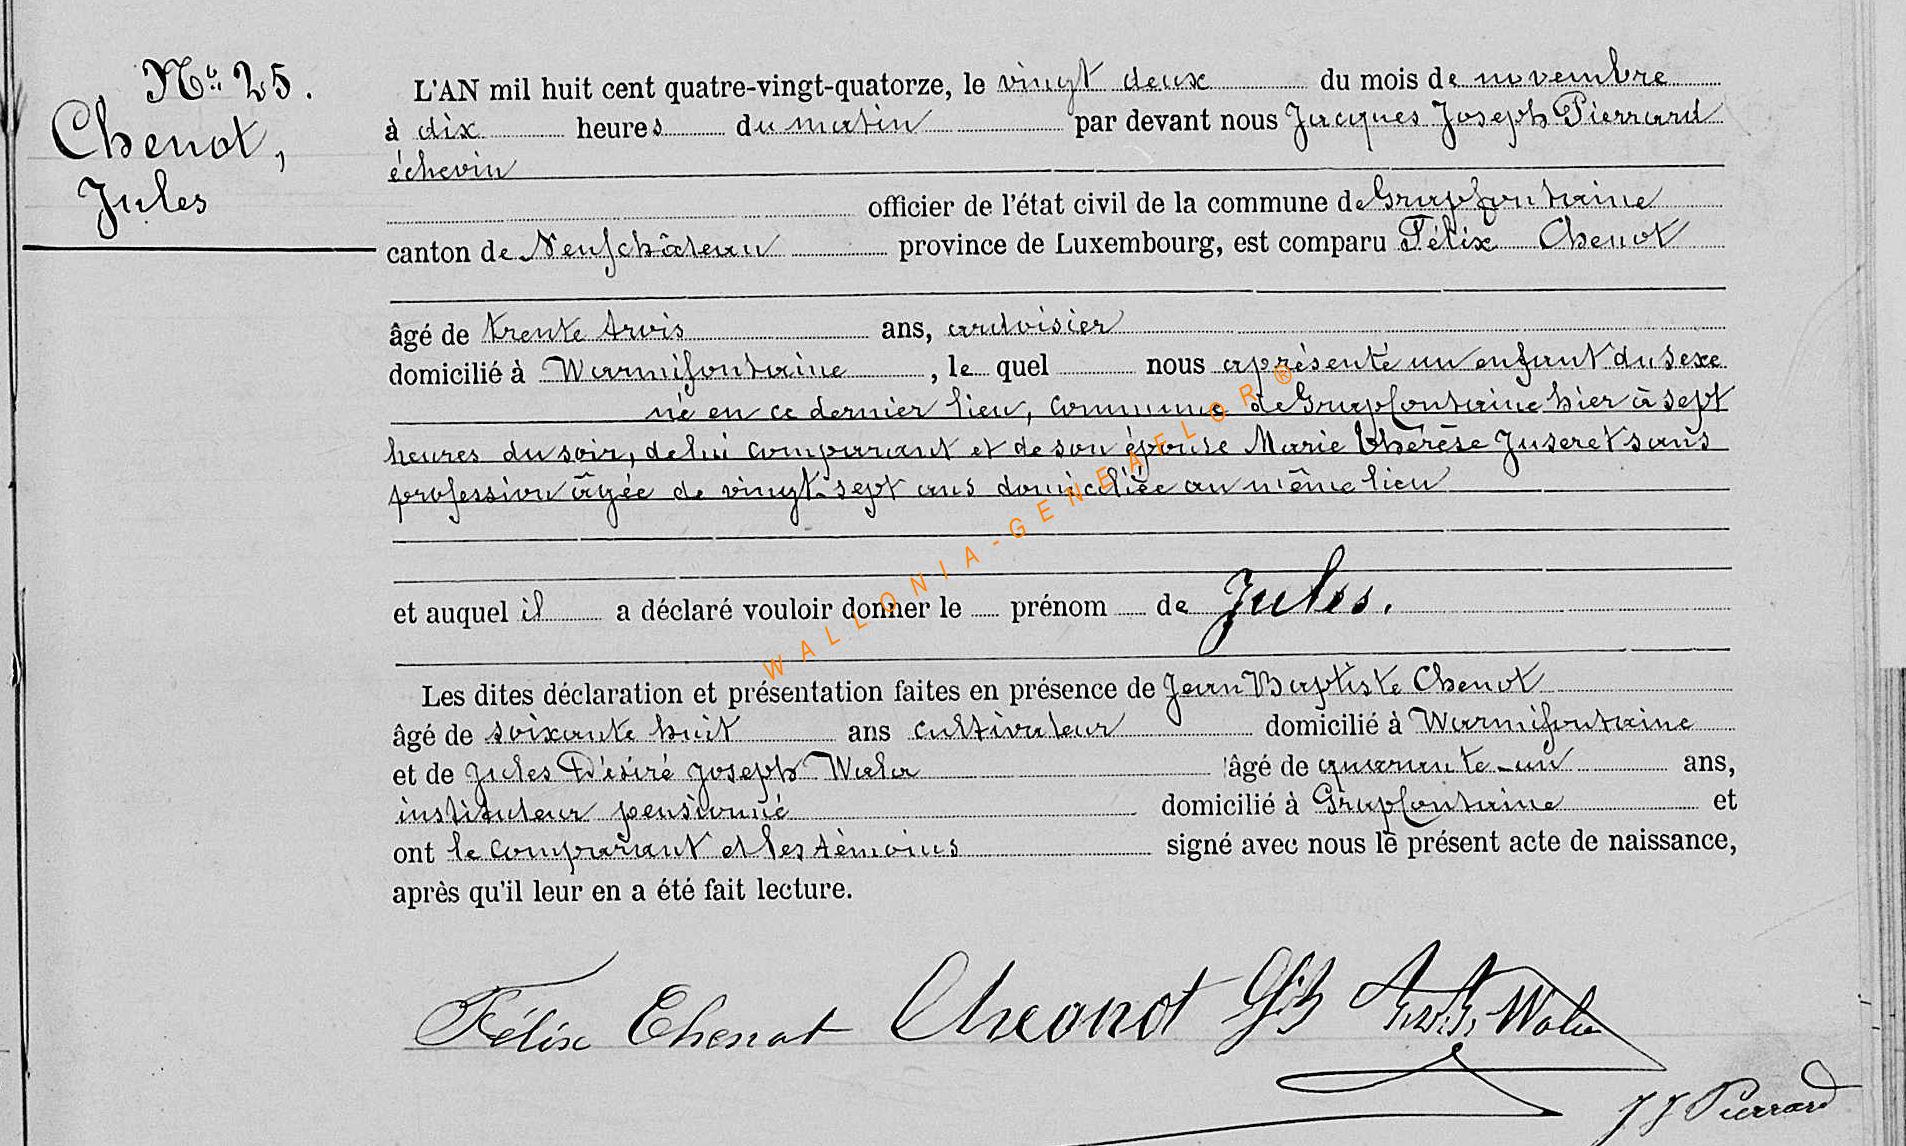 N° 25.
Chenot,
Jules
L'AN mil huit cent quatre-vingt-quatorze, le vingt deux du mois de novembre
à dix heures du matin par devant nous Jacques Joseph Pierrard
échevin
officier de l'état civil de la commune de Grapfontaine
canton de Neufchâteau province de Luxembourg, est comparu Félix Chenot
âgé de trente trois ans, ardoisier
domicilié à Warmifontaine, le quel nous a présenté un enfant du sexe
né en ce dernier lieu, commune de Grapfontaine hier à sept
heures du soir, de lui comparant et de son épouse Marie Thérèse Juseret sans
profession âgée de vingt-sept ans domiciliée au même lieu
et auquel il a déclaré vouloir donner le prénom de Jules.
Les dites déclaration et présentation faites en présence de Jean Baptiste Chenot
âgé de soixante huit ans cultivateur domicilié à Warmifontaine
et de Jules Désiré Joseph Wala âgé de quarante-un ans,
instituteur pensionné domicilié à Grapfontaine et
ont le comparant et les témoins signé avec nous le présent acte de naissance,
après qu'il leur en a été fait lecture.
Félix Chenot Chenot JB Wala
J J Pierrard
WALLONIA-GENEAFLOR®